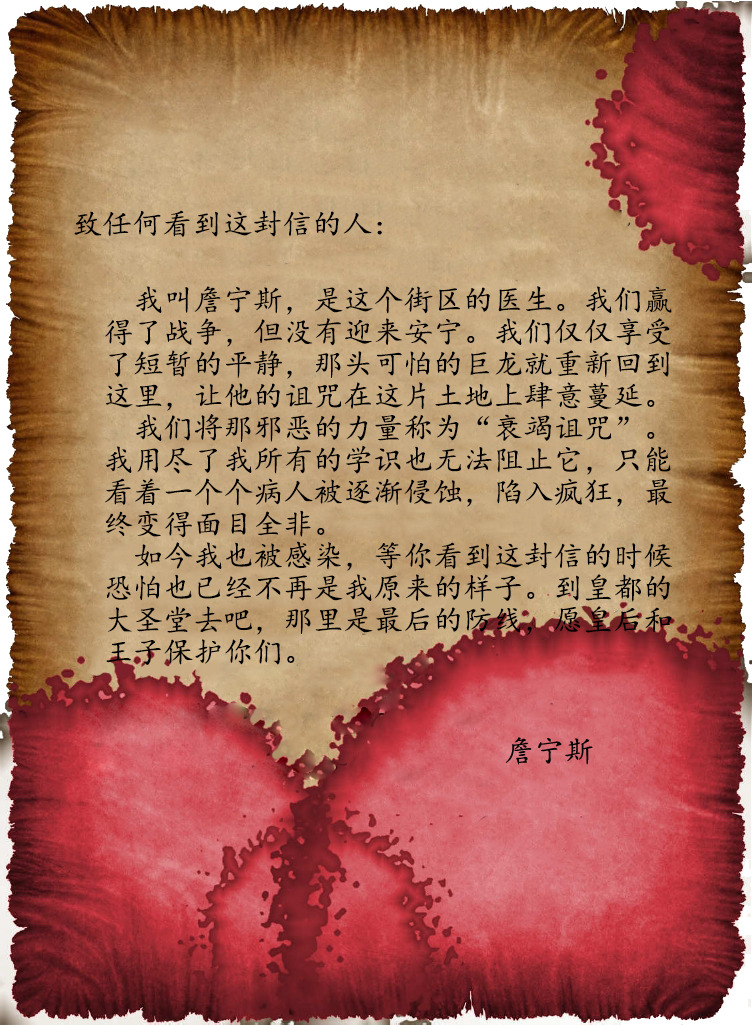 致任何看到这封信的人：
我叫詹宁斯，是这个街区的医生。我们赢
得了战争，但没有迎来安宁。我们仅仅享受
了短暂的平静，那头可怕的巨龙就重新回到
这里，让他的诅咒在这片土地上肆意蔓延。
我们将那邪恶的力量称为“衰竭诅咒”。
我用尽了我所有的学识也无法阻止它，只能
看着一个个病人被逐渐侵蚀，陷入疯狂，最
终变得面目全非。
如今我也被感染，等你看到这封信的时候
恐怕也已经不再是我原来的样子。到皇都的
大圣堂去吧，那里是最后的防线，愿皇后和
王子保护你们。
詹宁斯